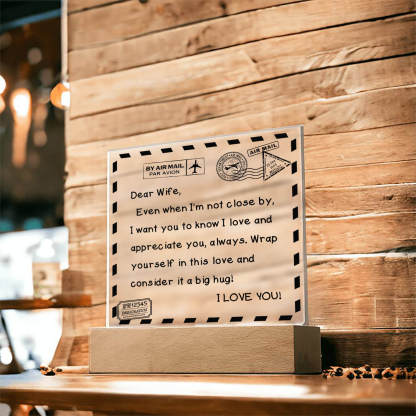 BY AIR MAIL
PAR AVION
AIR MAIL
Dear Wife,
Even when I'm not close by,
I want you to know I love and
appreciate you, always. Wrap
yourself in this love and
consider it a big hug!
I LOVE YOU!
12345